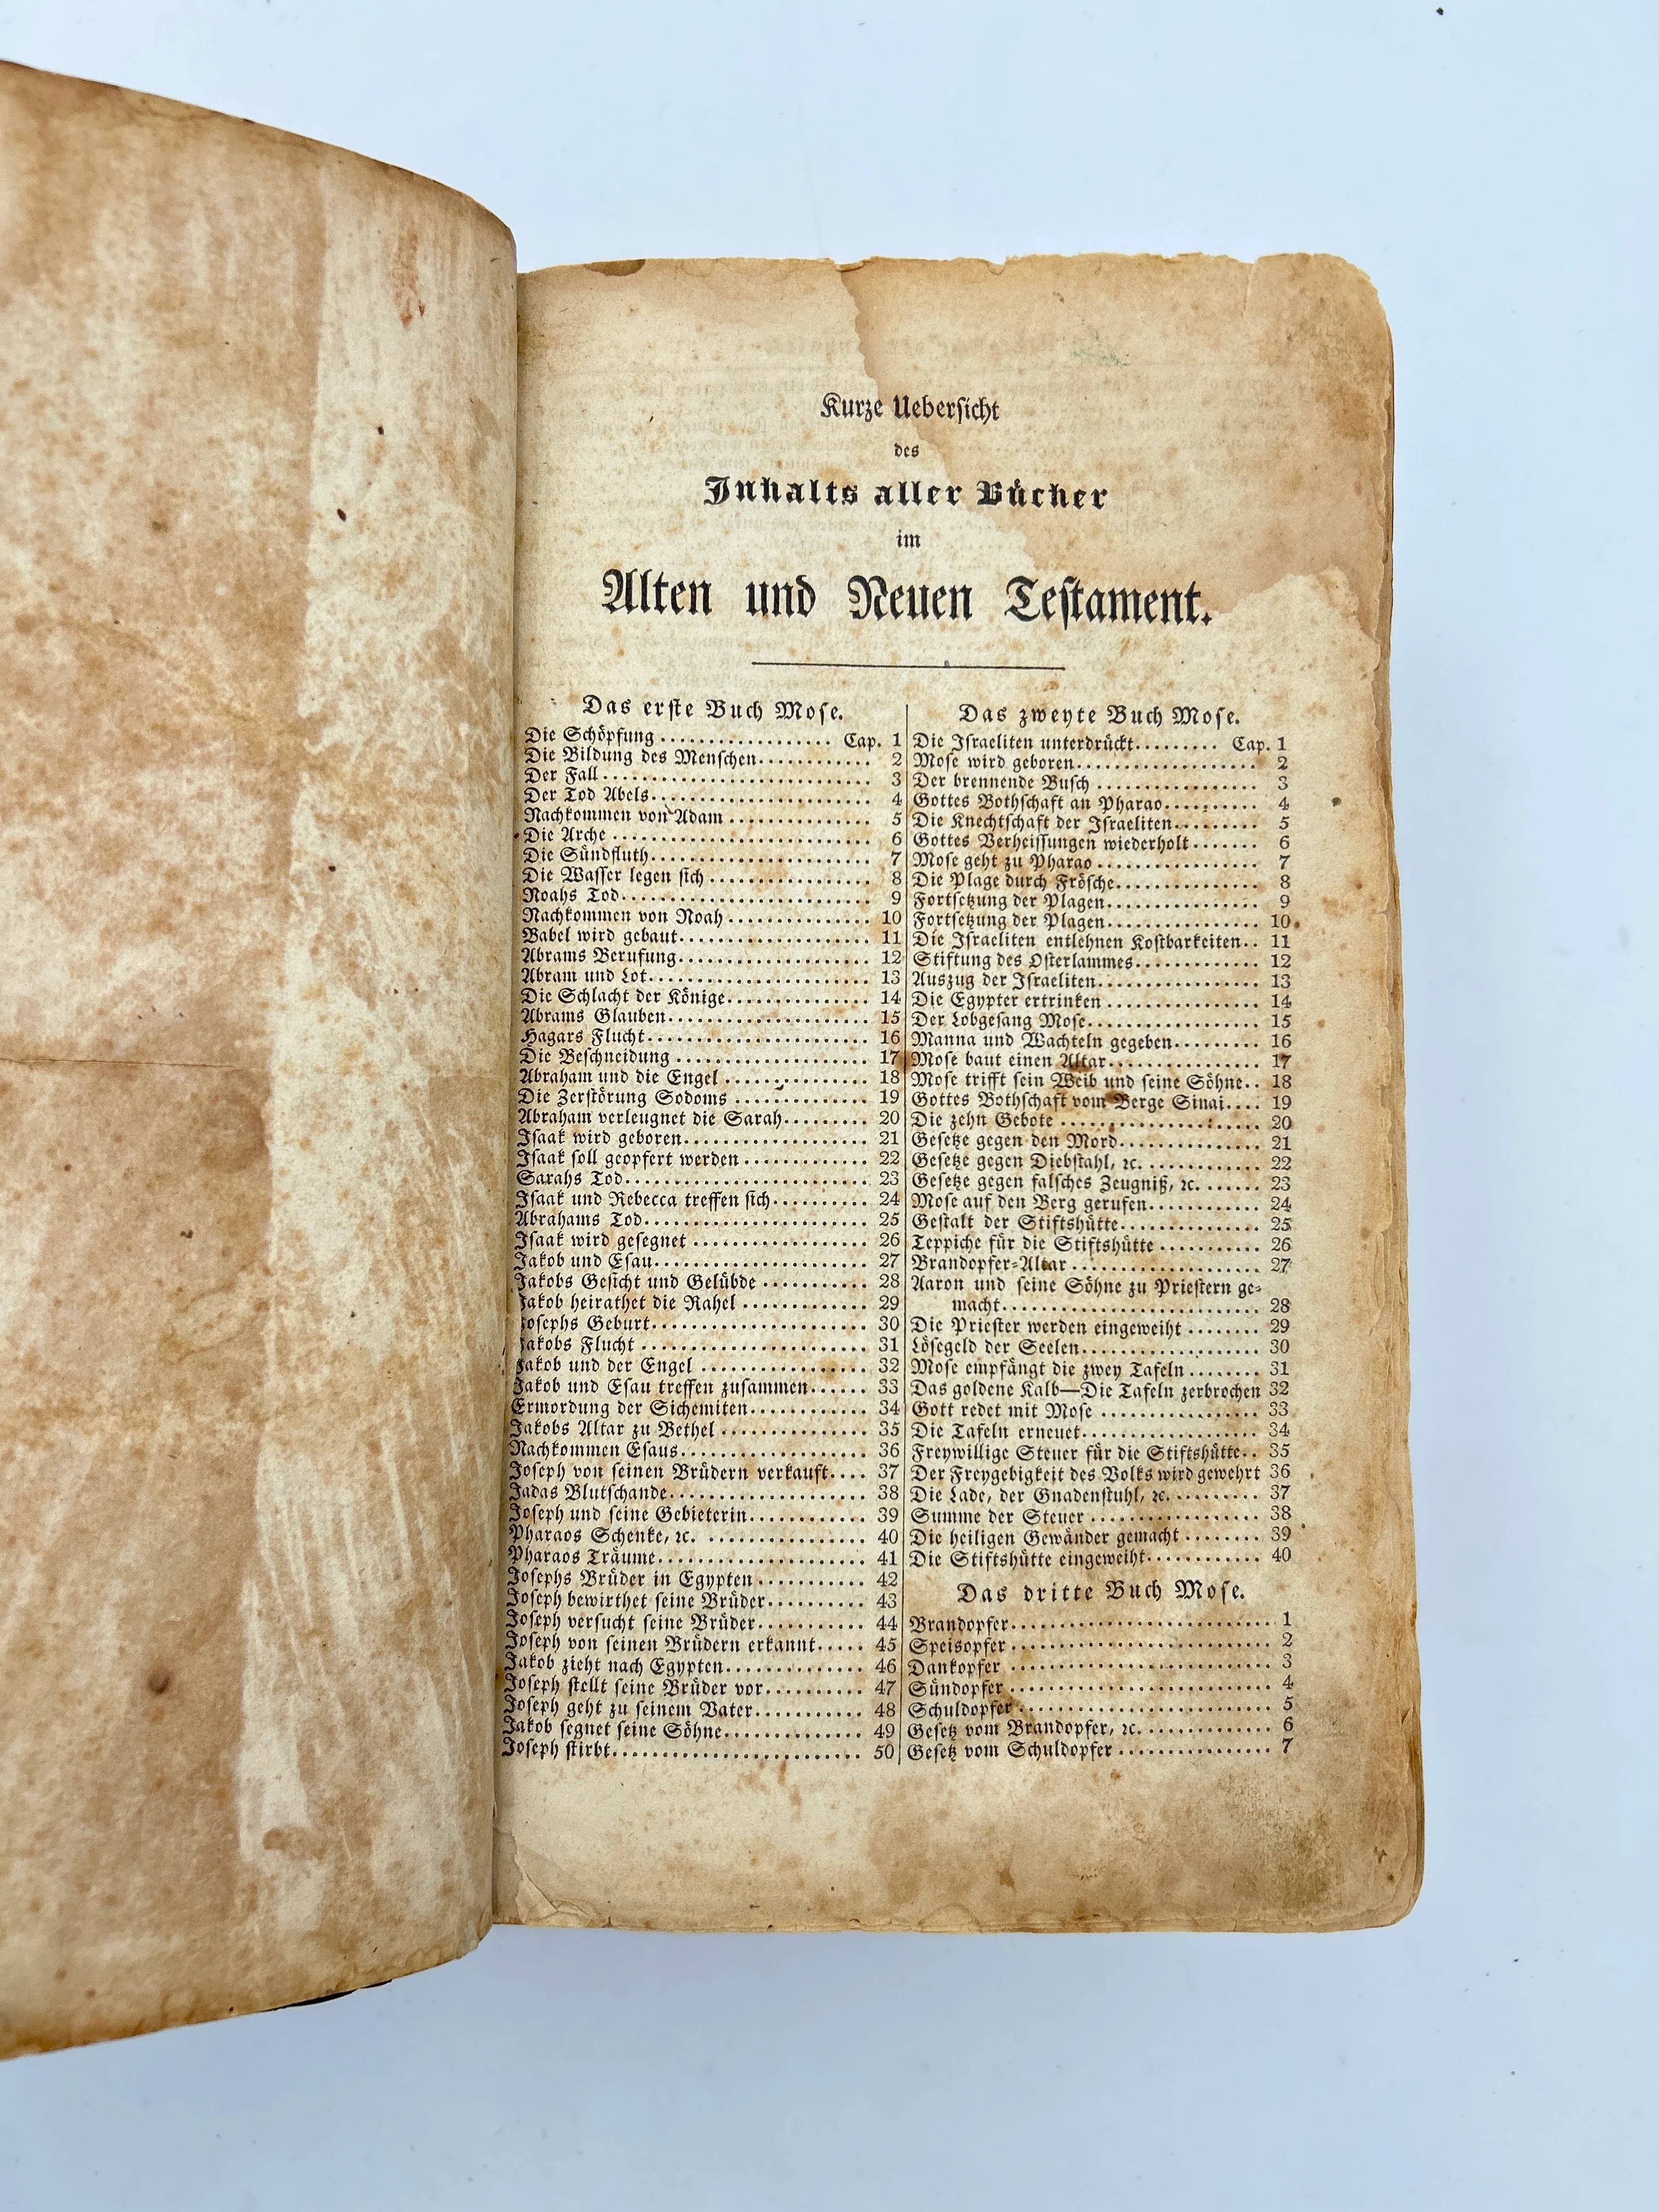 Kurze Uebersicht
des
Inhalts aller Bücher
im
Alten und Neuen Testament.
Das erste Buch Mose.
Die Schöpfung .................. Cap. 1
Die Bildung des Menschen............ 2
Der Fall............................ 3
Der Tod Abels....................... 4
Nachkommen von Adam ............... 5
Die Arche .......................... 6
Die Sündfluth....................... 7
Die Wasser legen sich .............. 8
Noahs Tod........................... 9
Nachkommen von Noah ............... 10
Babel wird gebaut................... 11
Abrams Berufung..................... 12
Abram und Lot....................... 13
Die Schlacht der Könige............. 14
Abrams Glauben...................... 15
Hagars Flucht....................... 16
Die Beschneidung ................... 17
Abraham und die Engel .............. 18
Die Zerstörung Sodoms .............. 19
Abraham verleugnet die Sarah........ 20
Isaak wird geboren.................. 21
Isaak soll geopfert werden ......... 22
Sarahs Tod.......................... 23
Isaak und Rebecca treffen sich...... 24
Abrahams Tod........................ 25
Isaak wird gesegnet ................ 26
Jakob und Esau...................... 27
Jakobs Gesicht und Gelübde ......... 28
Jakob heirathet die Rahel .......... 29
Josephs Geburt...................... 30
Jakobs Flucht ...................... 31
Jakob und der Engel ................ 32
Jakob und Esau treffen zusammen...... 33
Ermordung der Sichemiten............ 34
Jakobs Altar zu Bethel ............. 35
Nachkommen Esaus.................... 36
Joseph von seinen Brüdern verkauft.... 37
Jadas Blutschande................... 38
Joseph und seine Gebieterin......... 39
Pharaos Schenke, ꝛc. ............... 40
Pharaos Träume...................... 41
Josephs Brüder in Egypten .......... 42
Joseph bewirthet seine Brüder....... 43
Joseph versucht seine Brüder........ 44
Joseph von seinen Brüdern erkannt..... 45
Jakob zieht nach Egypten............ 46
Joseph stellt seine Brüder vor...... 47
Joseph geht zu seinem Vater......... 48
Jakob segnet seine Söhne............ 49
Joseph stirbt....................... 50
Das zweyte Buch Mose.
Die Israeliten unterdrückt......... Cap. 1
Mose wird geboren................... 2
Der brennende Busch ................ 3
Gottes Bothschaft an Pharao......... 4
Die Knechtschaft der Israeliten..... 5
Gottes Verheissungen wiederholt ....... 6
Mose geht zu Pharao ................ 7
Die Plage durch Frösche............. 8
Fortsetzung der Plagen.............. 9
Fortsetzung der Plagen.............. 10
Die Israeliten entlehnen Kostbarkeiten.. 11
Stiftung des Osterlammes............ 12
Auszug der Israeliten............... 13
Die Egypter ertrinken .............. 14
Der Lobgesang Mose.................. 15
Manna und Wachteln gegeben......... 16
Mose baut einen Altar............... 17
Mose trifft sein Weib und seine Söhne.. 18
Gottes Bothschaft vom Berge Sinai.... 19
Die zehn Gebote .................... 20
Gesetze gegen den Mord.............. 21
Gesetze gegen Diebstahl, ꝛc. ........... 22
Gesetze gegen falsches Zeugniß, ꝛc. ...... 23
Mose auf den Berg gerufen........... 24
Gestalt der Stiftshütte............. 25
Teppiche für die Stiftshütte ........... 26
Brandopfer-Altar ................... 27
Aaron und seine Söhne zu Priestern ge-
macht............................... 28
Die Priester werden eingeweiht ........ 29
Lösegeld der Seelen................. 30
Mose empfängt die zwey Tafeln ........ 31
Das goldene Kalb—Die Tafeln zerbrochen 32
Gott redet mit Mose ................ 33
Die Tafeln erneuet.................. 34
Freywillige Steuer für die Stiftshütte.. 35
Der Freygebigkeit des Volks wird gewehrt 36
Die Lade, der Gnadenstuhl, ꝛc. ......... 37
Summe der Steuer ................... 38
Die heiligen Gewänder gemacht ........ 39
Die Stiftshütte eingeweiht............ 40
Das dritte Buch Mose.
Brandopfer.......................... 1
Speisopfer ......................... 2
Dankopfer .......................... 3
Sündopfer .......................... 4
Schuldopfer ........................ 5
Gesetz vom Brandopfer, ꝛc. ............. 6
Gesetz vom Schuldopfer ................ 7